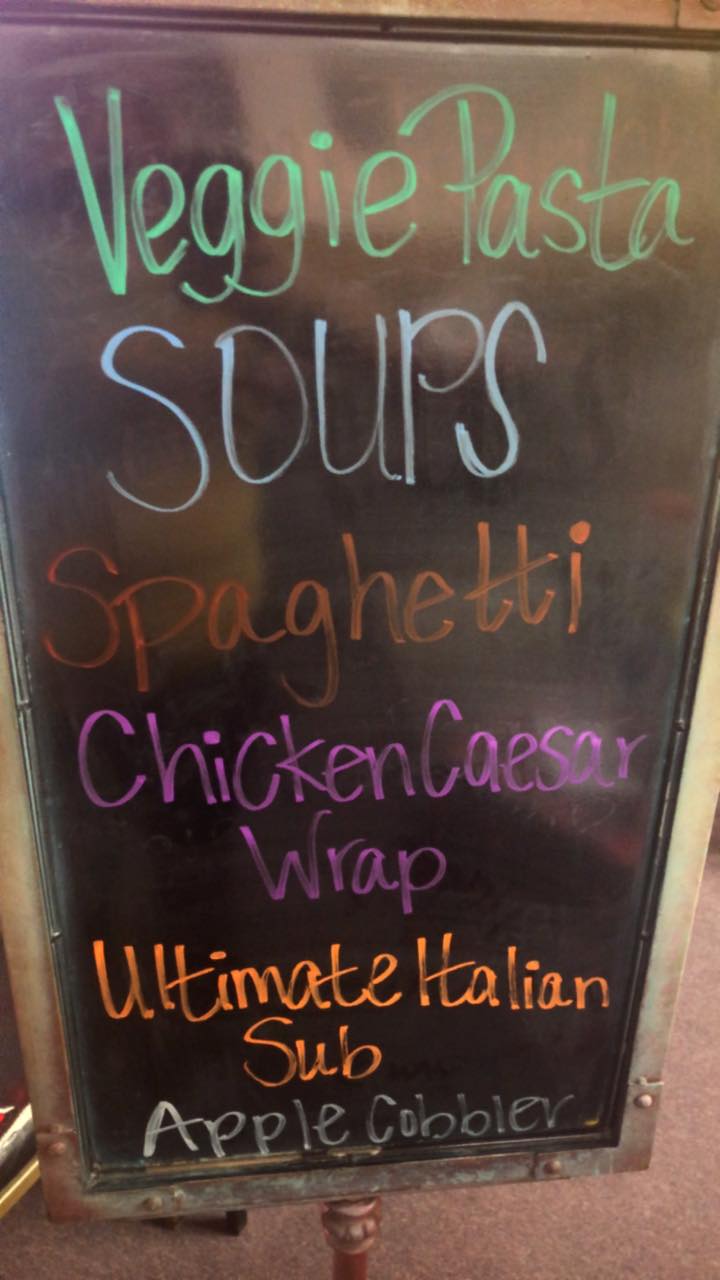 Veggie Pasta
SOUPS
Spaghetti
Chicken Caesar
Wrap
Ultimate Italian
Sub
Apple Cobbler